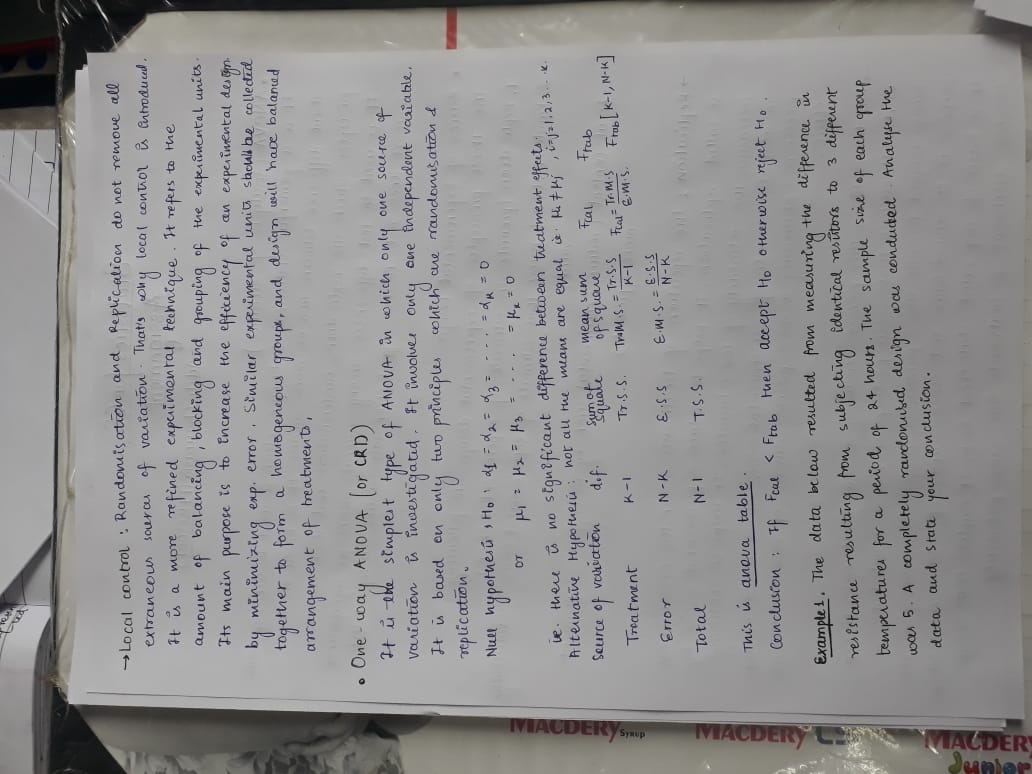 → Local control : Randomisation and Replication do not remove all
extraneous sources of variation. That's why local control is introduced.
It is a more refined experimental technique. It refers to the
amount of balancing, blocking and grouping of the experimental units.
Its main purpose is to increase the efficiency of an experimental design
by minimizing exp. error. Similar experimental units should be collected
together to form a homogeneous groups, and design will have balanced
arrangement of treatments.
• One-way ANOVA (or CRD)
It is the simplest type of ANOVA in which only one source of
variation is investigated. It involves only one independent variable.
It is based on only two principles which are randomisation &
replication.
Null hypothesis, H0 : α1 = α2 = α3 = .... = αk = 0
or μ1 = μ2 = μ3 = .... = μk = 0
ie. there is no significant difference between treatment effects.
Alternative Hypothesis : not all the means are equal ie. μi ≠ μj , i=j=1,2,3...k.
Source of variation d.f. Sum of Square mean sum of square Fcal Ftab
Treatment K-1 Tr.S.S. Tr.M.S. = Tr.S.S/K-1 Fcal = Tr.M.S/E.M.S. Ftab [K-1, N-K]
Error N-K E.S.S E.M.S. = E.S.S/N-K
Total N-1 T.S.S.
This is anova table.
Conclusion : If Fcal < Ftab then accept H0 otherwise reject H0.
Example 1. The data below resulted from measuring the difference in
resistance resulting from subjecting identical resistors to 3 different
temperatures for a period of 24 hours. The sample size of each group
was 5. A completely randomised design was conducted. Analyse the
data and state your conclusion.
MACDERY Syrup
MACDERY
MACDERY
Junior